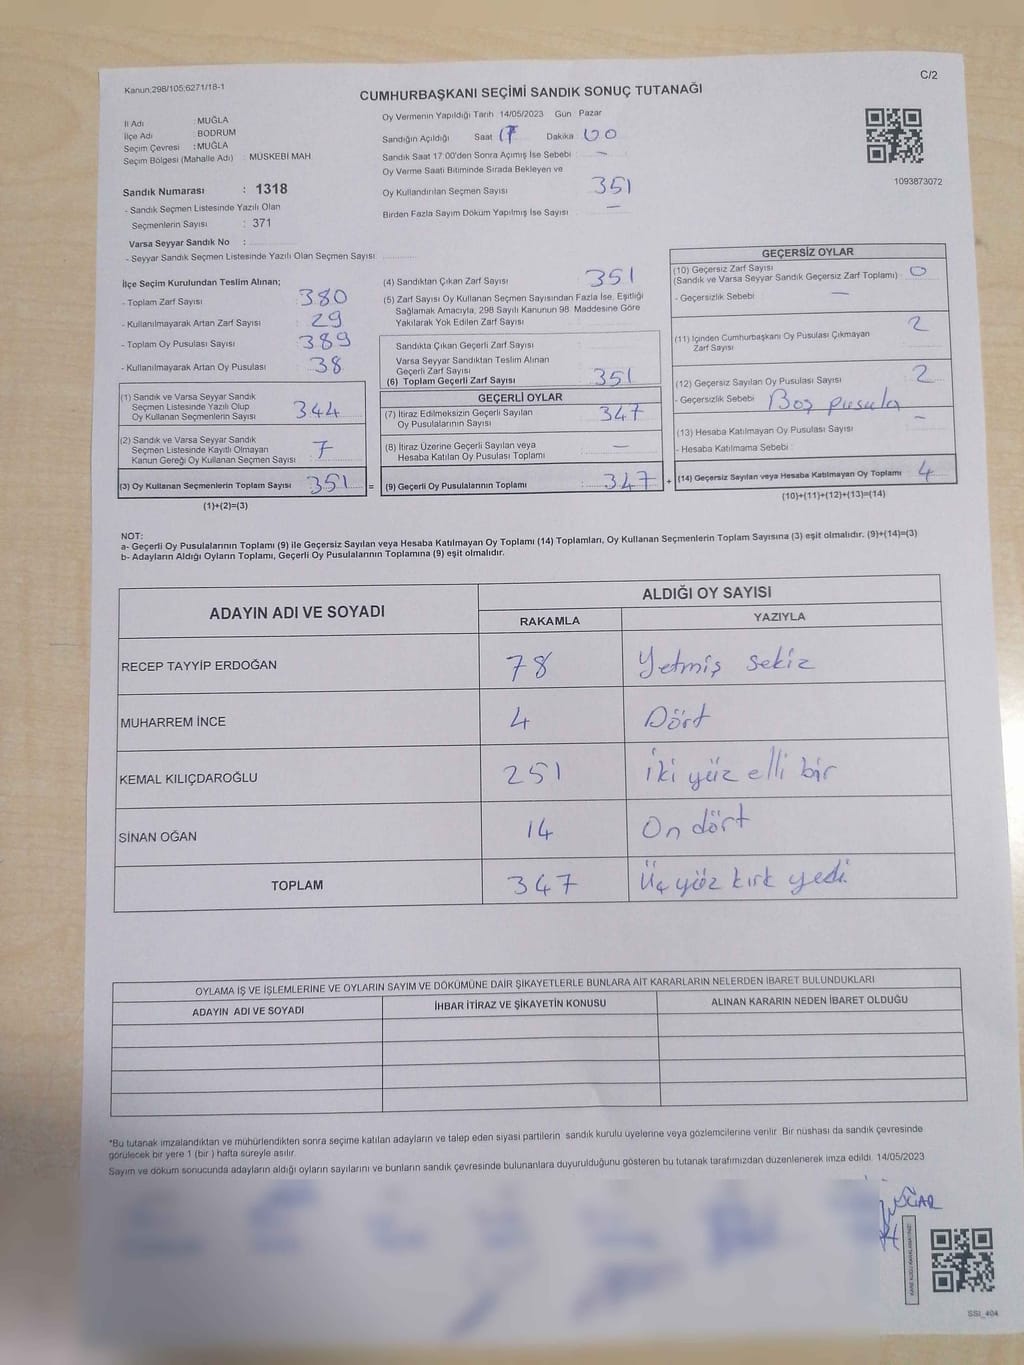 Kanun:298/105;6271/18-1
C/2
CUMHURBAŞKANI SEÇİMİ SANDIK SONUÇ TUTANAĞI
İl Adı : MUĞLA
İlçe Adı : BODRUM
Seçim Çevresi : MUĞLA
Seçim Bölgesi (Mahalle Adı) : MÜSKEBİ MAH
Sandık Numarası : 1318
- Sandık Seçmen Listesinde Yazılı Olan
Seçmenlerin Sayısı : 371
Varsa Seyyar Sandık No :
- Seyyar Sandık Seçmen Listesinde Yazılı Olan Seçmen Sayısı :
Oy Vermenin Yapıldığı Tarih 14/05/2023 Gün Pazar
Sandığın Açıldığı Saat 17 Dakika 00
Sandık Saat 17 00'den Sonra Açımış İse Sebebi : –
Oy Verme Saati Bitiminde Sırada Bekleyen ve
Oy Kullandırılan Seçmen Sayısı 351
Birden Fazla Sayım Döküm Yapılmış İse Sayısı : –
1093873072
İlçe Seçim Kurulundan Teslim Alınan;
- Toplam Zarf Sayısı 380
- Kullanılmayarak Artan Zarf Sayısı : 29
- Toplam Oy Pusulası Sayısı : 389
- Kullanılmayarak Artan Oy Pusulası 38
(1) Sandık ve Varsa Seyyar Sandık
Seçmen Listesinde Yazılı Olup
Oy Kullanan Seçmenlerin Sayısı 344
(2) Sandık ve Varsa Seyyar Sandık
Seçmen Listesinde Kayıtlı Olmayan
Kanun Gereği Oy Kullanan Seçmen Sayısı : 7
(3) Oy Kullanan Seçmenlerin Toplam Sayısı : 351 =
(1)+(2)=(3)
(4) Sandıktan Çıkan Zarf Sayısı 351
(5) Zarf Sayısı Oy Kullanan Seçmen Sayısından Fazla İse, Eşitliği
Sağlamak Amacıyla, 298 Sayılı Kanunun 98. Maddesine Göre
Yakılarak Yok Edilen Zarf Sayısı :
Sandıkta Çıkan Geçerli Zarf Sayısı
Varsa Seyyar Sandıktan Teslim Alınan
Geçerli Zarf Sayısı
(6) Toplam Geçerli Zarf Sayısı : 351
GEÇERLİ OYLAR
(7) İtiraz Edilmeksizin Geçerli Sayılan
Oy Pusulalarının Sayısı : 347
(8) İtiraz Üzerine Geçerli Sayılan veya
Hesaba Katılan Oy Pusulası Toplamı –
(9) Geçerli Oy Pusulalarının Toplamı : 347 +
GEÇERSİZ OYLAR
(10) Geçersiz Zarf Sayısı
(Sandık ve Varsa Seyyar Sandık Geçersiz Zarf Toplamı) : 0
- Geçersizlik Sebebi : –
(11) İçinden Cumhurbaşkanı Oy Pusulası Çıkmayan
Zarf Sayısı 2
(12) Geçersiz Sayılan Oy Pusulası Sayısı 2
- Geçersizlik Sebebi : Boş pusula
(13) Hesaba Katılmayan Oy Pusulası Sayısı –
- Hesaba Katılmama Sebebi :
(14) Geçersiz Sayılan veya Hesaba Katılmayan Oy Toplamı : 4
(10)+(11)+(12)+(13)=(14)
NOT:
a- Geçerli Oy Pusulalarının Toplamı (9) ile Geçersiz Sayılan veya Hesaba Katılmayan Oy Toplamı (14) Toplamları, Oy Kullanan Seçmenlerin Toplam Sayısına (3) eşit olmalıdır. (9)+(14)=(3)
b- Adayların Aldığı Oyların Toplamı, Geçerli Oy Pusulalarının Toplamına (9) eşit olmalıdır.
ADAYIN ADI VE SOYADI
ALDIĞI OY SAYISI
RAKAMLA YAZIYLA
RECEP TAYYİP ERDOĞAN 78 Yetmiş sekiz
MUHARREM İNCE 4 Dört
KEMAL KILIÇDAROĞLU 251 iki yüz elli bir
SİNAN OĞAN 14 On dört
TOPLAM 347 Üç yüz kırk yedi
OYLAMA İŞ VE İŞLEMLERİNE VE OYLARIN SAYIM VE DÖKÜMÜNE DAİR ŞİKAYETLERLE BUNLARA AİT KARARLARIN NELERDEN İBARET BULUNDUKLARI
ADAYIN ADI VE SOYADI İHBAR İTİRAZ VE ŞİKAYETİN KONUSU ALINAN KARARIN NEDEN İBARET OLDUĞU
*Bu tutanak imzalandıktan ve mühürlendikten sonra seçime katılan adayların ve talep eden siyasi partilerin sandık kurulu üyelerine veya gözlemcilerine verilir. Bir nüshası da sandık çevresinde
görülecek bir yere 1 (bir ) hafta süreyle asılır.
Sayım ve döküm sonucunda adayların aldığı oyların sayılarını ve bunların sandık çevresinde bulunanlara duyurulduğunu gösteren bu tutanak tarafımızdan düzenlenerek imza edildi. 14/05/2023
SSI_404